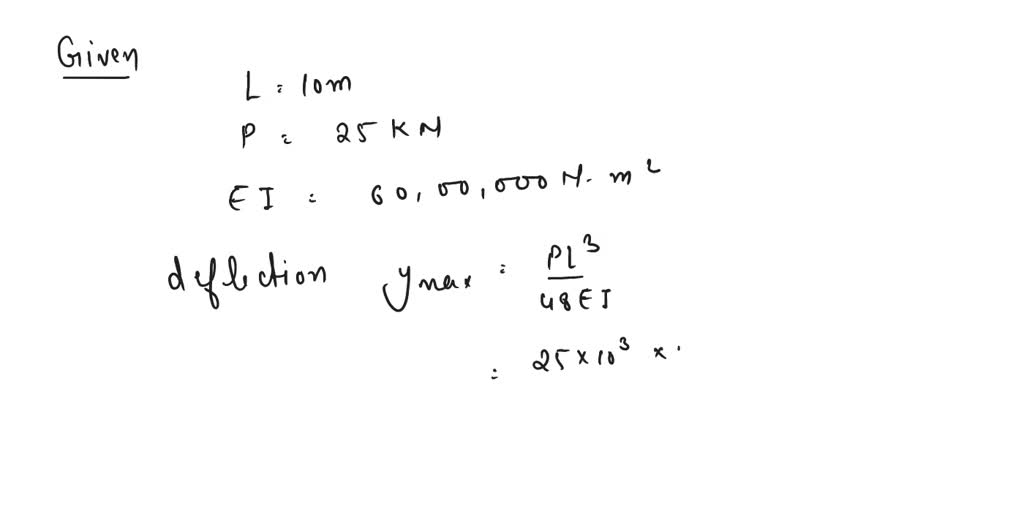 Given
L = 10m
P = 25 KN
EI = 60,00,000 N. m²
deflection ymax = PL³ / 48EI
= 25 × 10³ ×